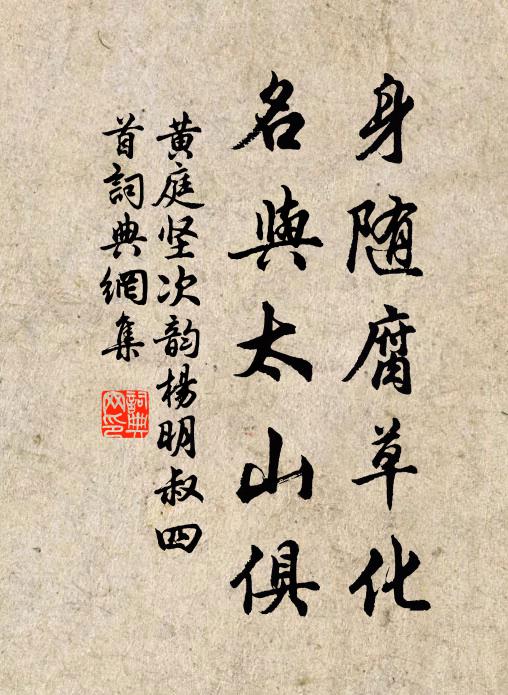 身随腐草化
名與太山俱
黄庭坚次韵楊明叔四
首詞典網集
詞典
网印